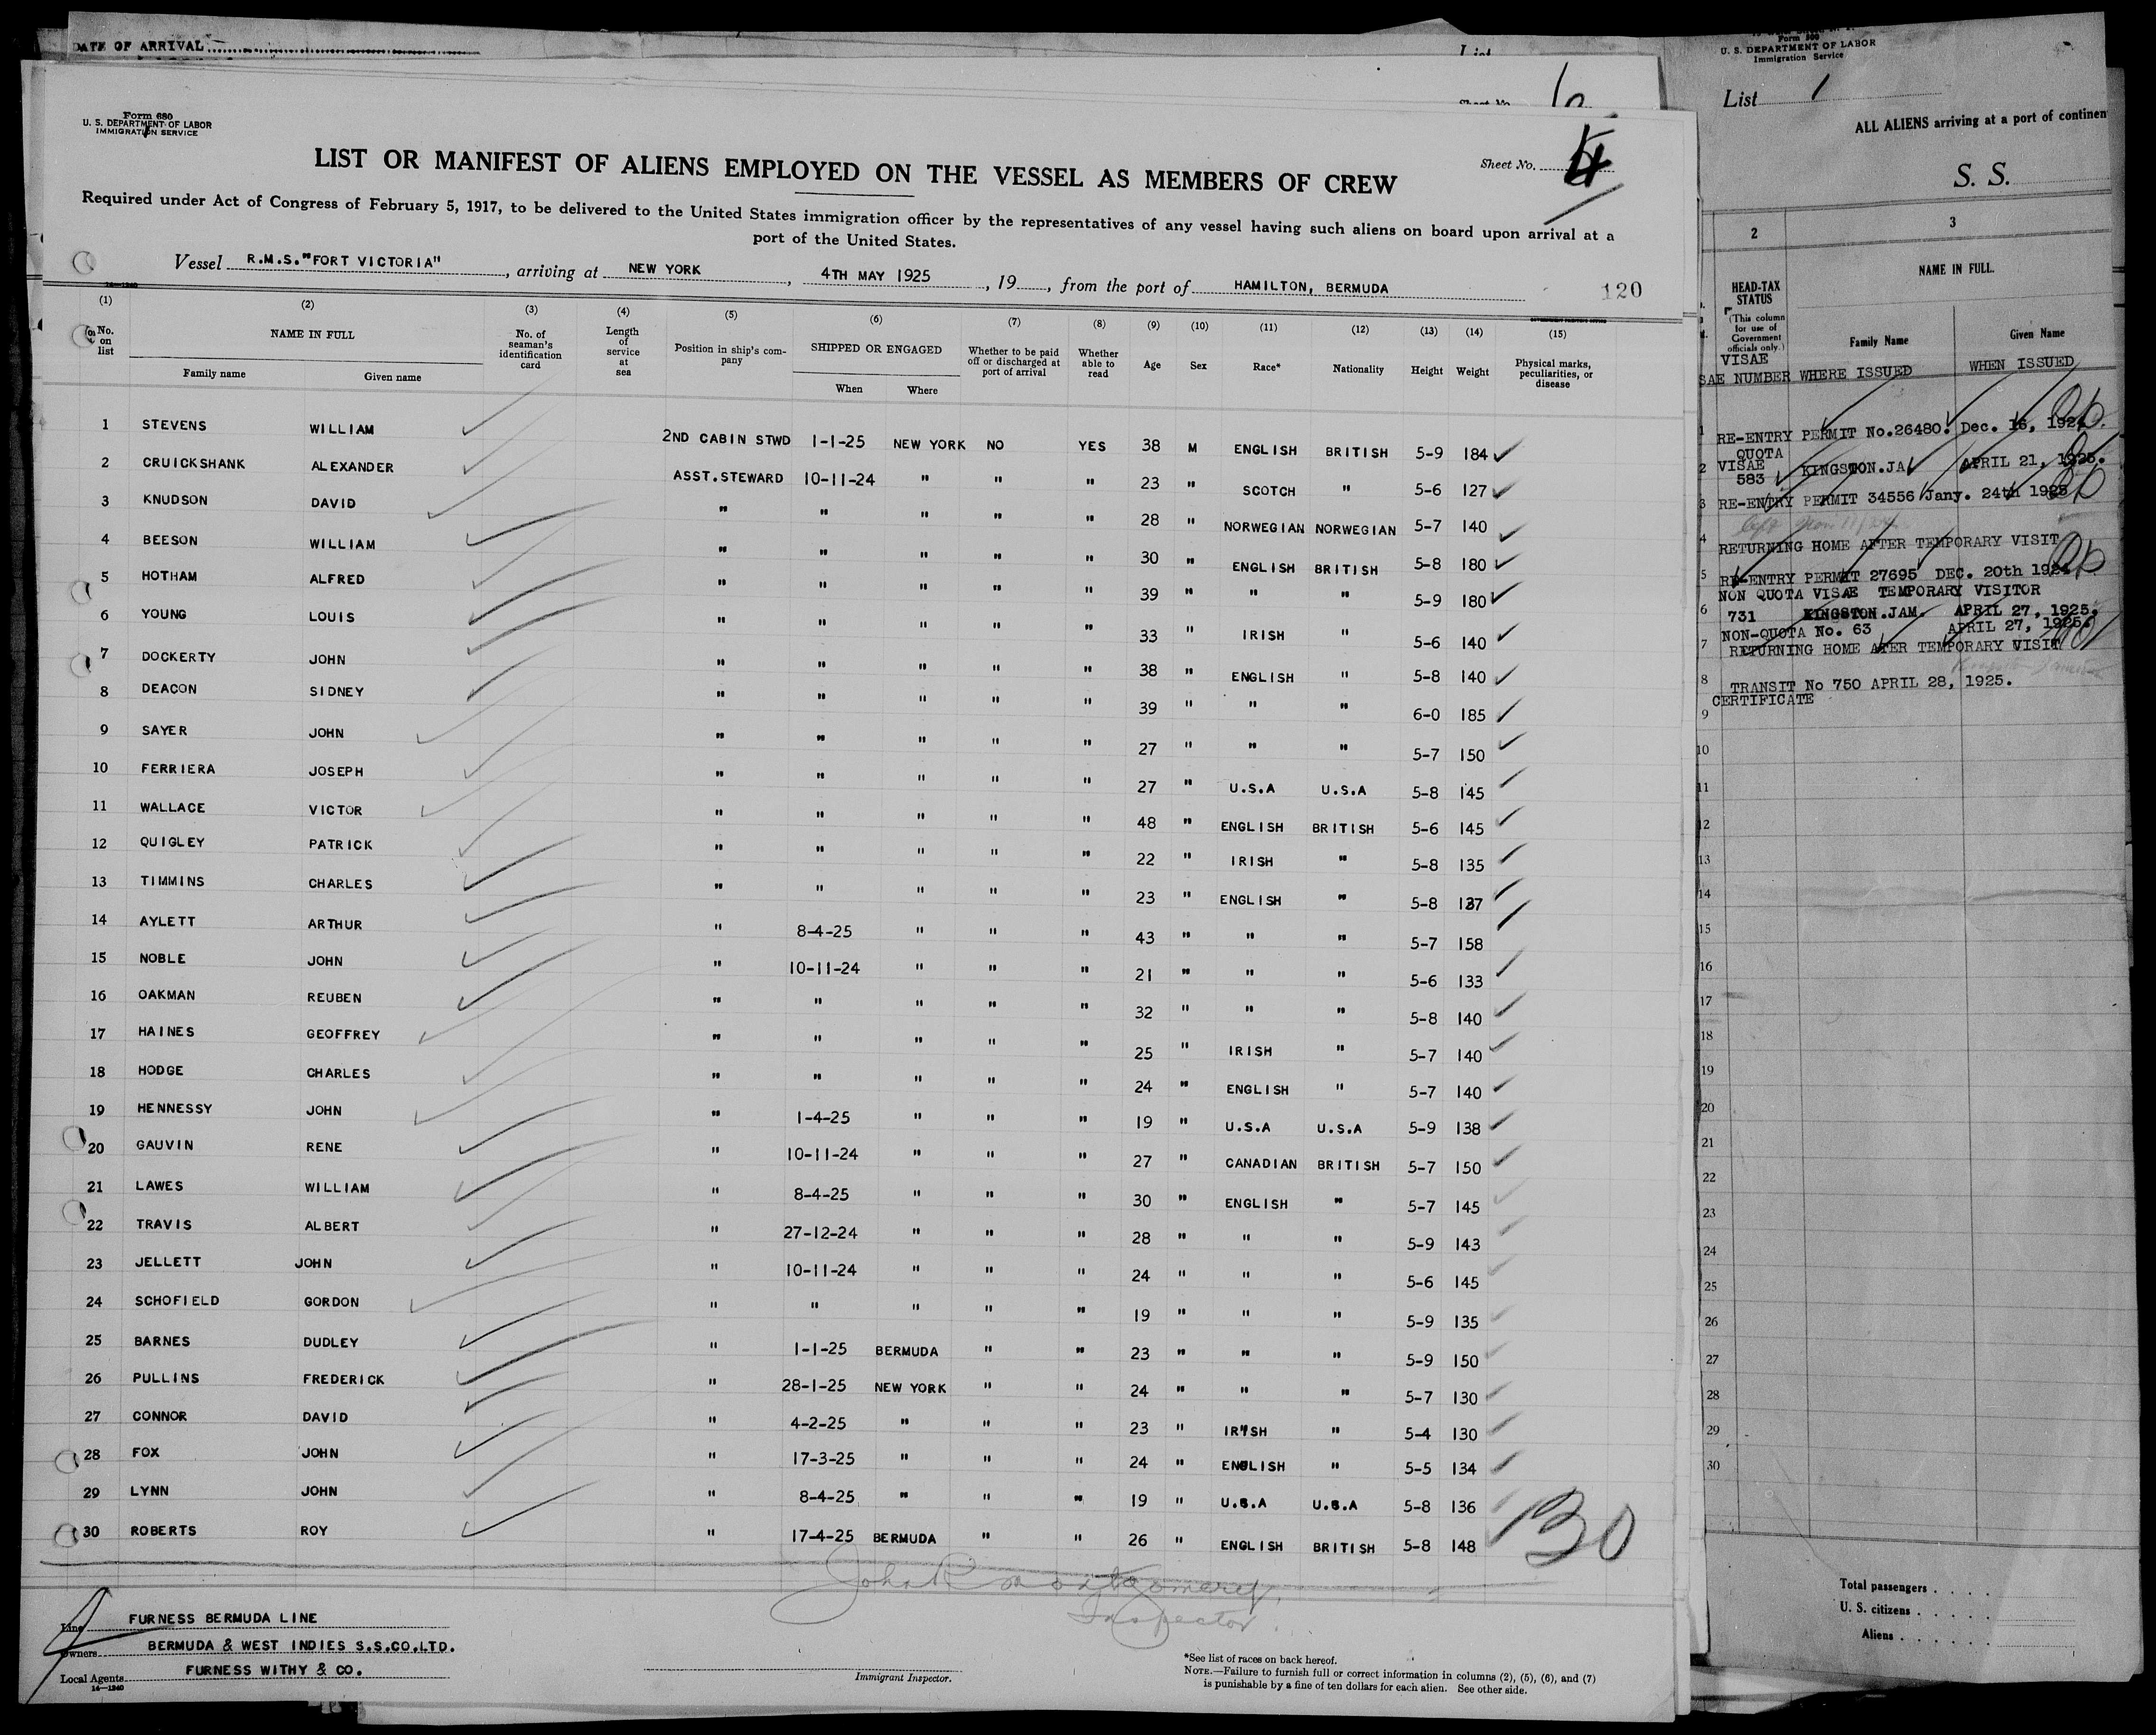 DATE OF ARRIVAL
Form 680
U. S. DEPARTMENT OF LABOR
IMMIGRATION SERVICE
LIST OR MANIFEST OF ALIENS EMPLOYED ON THE VESSEL AS MEMBERS OF CREW
Sheet No. 4
Required under Act of Congress of February 5, 1917, to be delivered to the United States immigration officer by the representatives of any vessel having such aliens on board upon arrival at a
port of the United States.
Vessel R.M.S."FORT VICTORIA", arriving at NEW YORK, 4TH MAY 1925, 19, from the port of HAMILTON, BERMUDA 120
(1) (2) (3) (4) (5) (6) (7) (8) (9) (10) (11) (12) (13) (14) (15)
No. on list NAME IN FULL No. of seaman's identification card Length of service at sea Position in ship's company SHIPPED OR ENGAGED Whether to be paid off or discharged at port of arrival Whether able to read Age Sex Race* Nationality Height Weight Physical marks, peculiarities, or disease
Family name Given name When Where
1 STEVENS WILLIAM 2ND CABIN STWD 1-1-25 NEW YORK NO YES 38 M ENGLISH BRITISH 5-9 184
2 CRUICKSHANK ALEXANDER ASST.STEWARD 10-11-24 " " " 23 " SCOTCH " 5-6 127
3 KNUDSON DAVID " " " " " 28 " NORWEGIAN NORWEGIAN 5-7 140
4 BEESON WILLIAM " " " " " 30 " ENGLISH BRITISH 5-8 180
5 HOTHAM ALFRED " " " " " 39 " " " 5-9 180
6 YOUNG LOUIS " " " " " 33 " IRISH " 5-6 140
7 DOCKERTY JOHN " " " " " 38 " ENGLISH " 5-8 140
8 DEACON SIDNEY " " " " " 39 " " " 6-0 185
9 SAYER JOHN " " " " " 27 " " " 5-7 150
10 FERRIERA JOSEPH " " " " " 27 " U.S.A U.S.A 5-8 145
11 WALLACE VICTOR " " " " " 48 " ENGLISH BRITISH 5-6 145
12 QUIGLEY PATRICK " " " " " 22 " IRISH " 5-8 135
13 TIMMINS CHARLES " " " " " 23 " ENGLISH " 5-8 137
14 AYLETT ARTHUR " 8-4-25 " " " 43 " " " 5-7 158
15 NOBLE JOHN " 10-11-24 " " " 21 " " " 5-6 133
16 OAKMAN REUBEN " " " " " 32 " " " 5-8 140
17 HAINES GEOFFREY " " " " " 25 " IRISH " 5-7 140
18 HODGE CHARLES " " " " " 24 " ENGLISH " 5-7 140
19 HENNESSY JOHN " 1-4-25 " " " 19 " U.S.A U.S.A 5-9 138
20 GAUVIN RENE " 10-11-24 " " " 27 " CANADIAN BRITISH 5-7 150
21 LAWES WILLIAM " 8-4-25 " " " 30 " ENGLISH " 5-7 145
22 TRAVIS ALBERT " 27-12-24 " " " 28 " " " 5-9 143
23 JELLETT JOHN " 10-11-24 " " " 24 " " " 5-6 145
24 SCHOFIELD GORDON " " " " " 19 " " " 5-9 135
25 BARNES DUDLEY " 1-1-25 BERMUDA " " 23 " " " 5-9 150
26 PULLINS FREDERICK " 28-1-25 NEW YORK " " 24 " " " 5-7 130
27 CONNOR DAVID " 4-2-25 " " " 23 " IRISH " 5-4 130
28 FOX JOHN " 17-3-25 " " " 24 " ENGLISH " 5-5 134
29 LYNN JOHN " 8-4-25 " " " 19 " U.S.A U.S.A 5-8 136
30 ROBERTS ROY " 17-4-25 BERMUDA " " 26 " ENGLISH BRITISH 5-8 148
30
John R Montgomery,
Inspector
Line FURNESS BERMUDA LINE
Owners BERMUDA & WEST INDIES S.S.CO.LTD.
Local Agents FURNESS WITHY & CO.
14—1240
Immigrant Inspector.
*See list of races on back hereof.
NOTE.—Failure to furnish full or correct information in columns (2), (5), (6), and (7)
is punishable by a fine of ten dollars for each alien. See other side.
Form 500
U. S. DEPARTMENT OF LABOR
Immigration Service
List 1
ALL ALIENS arriving at a port of continen
S. S.
2 3
HEAD-TAX STATUS
(This column for use of Government officials only.)
NAME IN FULL.
Family Name Given Name
VISAE
NUMBER WHERE ISSUED WHEN ISSUED
1 RE-ENTRY PERMIT No.26480. Dec. 16, 1924.
QUOTA
2 VISAE KINGSTON.JA APRIL 21, 1925.
583
3 RE-ENTRY PERMIT 34556 Jany. 24th 1925
4 RETURNING HOME AFTER TEMPORARY VISIT
5 RE-ENTRY PERMIT 27695 DEC. 20th 1924
NON QUOTA VISAE TEMPORARY VISITOR
6 731 KINGSTON.JAM. APRIL 27, 1925.
NON-QUOTA No. 63 APRIL 27, 1925.
7 RETURNING HOME AFER TEMPORARY VISIT
8 TRANSIT No 750 APRIL 28, 1925.
CERTIFICATE
9
10
11
12
13
14
15
16
17
18
19
20
21
22
23
24
25
26
27
28
29
30
Total passengers
U. S. citizens
Aliens